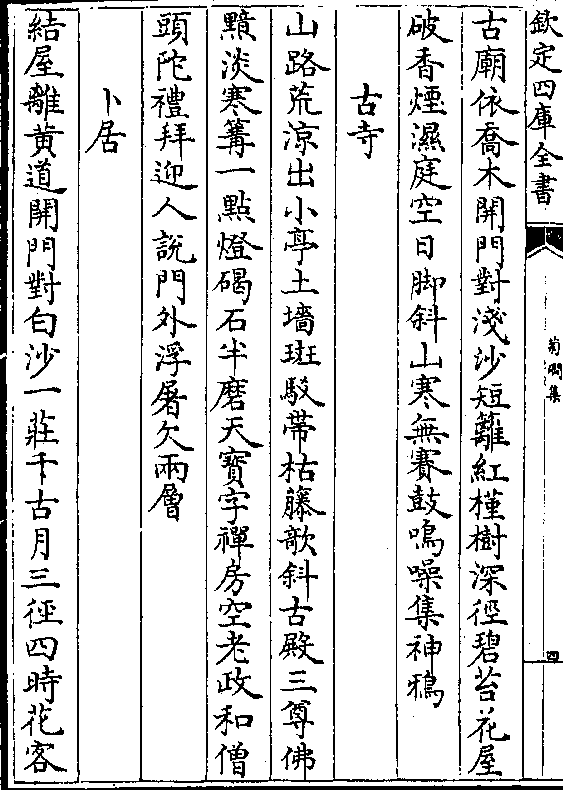 欽定四庫全書
菊磵集
四
古廟依喬木開門對淺沙短籬紅槿樹深徑碧苔花屋
破香煙濕庭空日脚斜山寒無賽鼓鳴噪集神鴉
古寺
山路荒涼出小亭土墻斑駁帶枯藤欹斜古殿三尊佛
黯淡寒篝一點燈碣石半磨天寳字禪房空老政和僧
頭陀禮拜迎人說門外浮屠欠兩層
卜居
結屋離黄道開門對白沙一莊千古月三徑四時花客